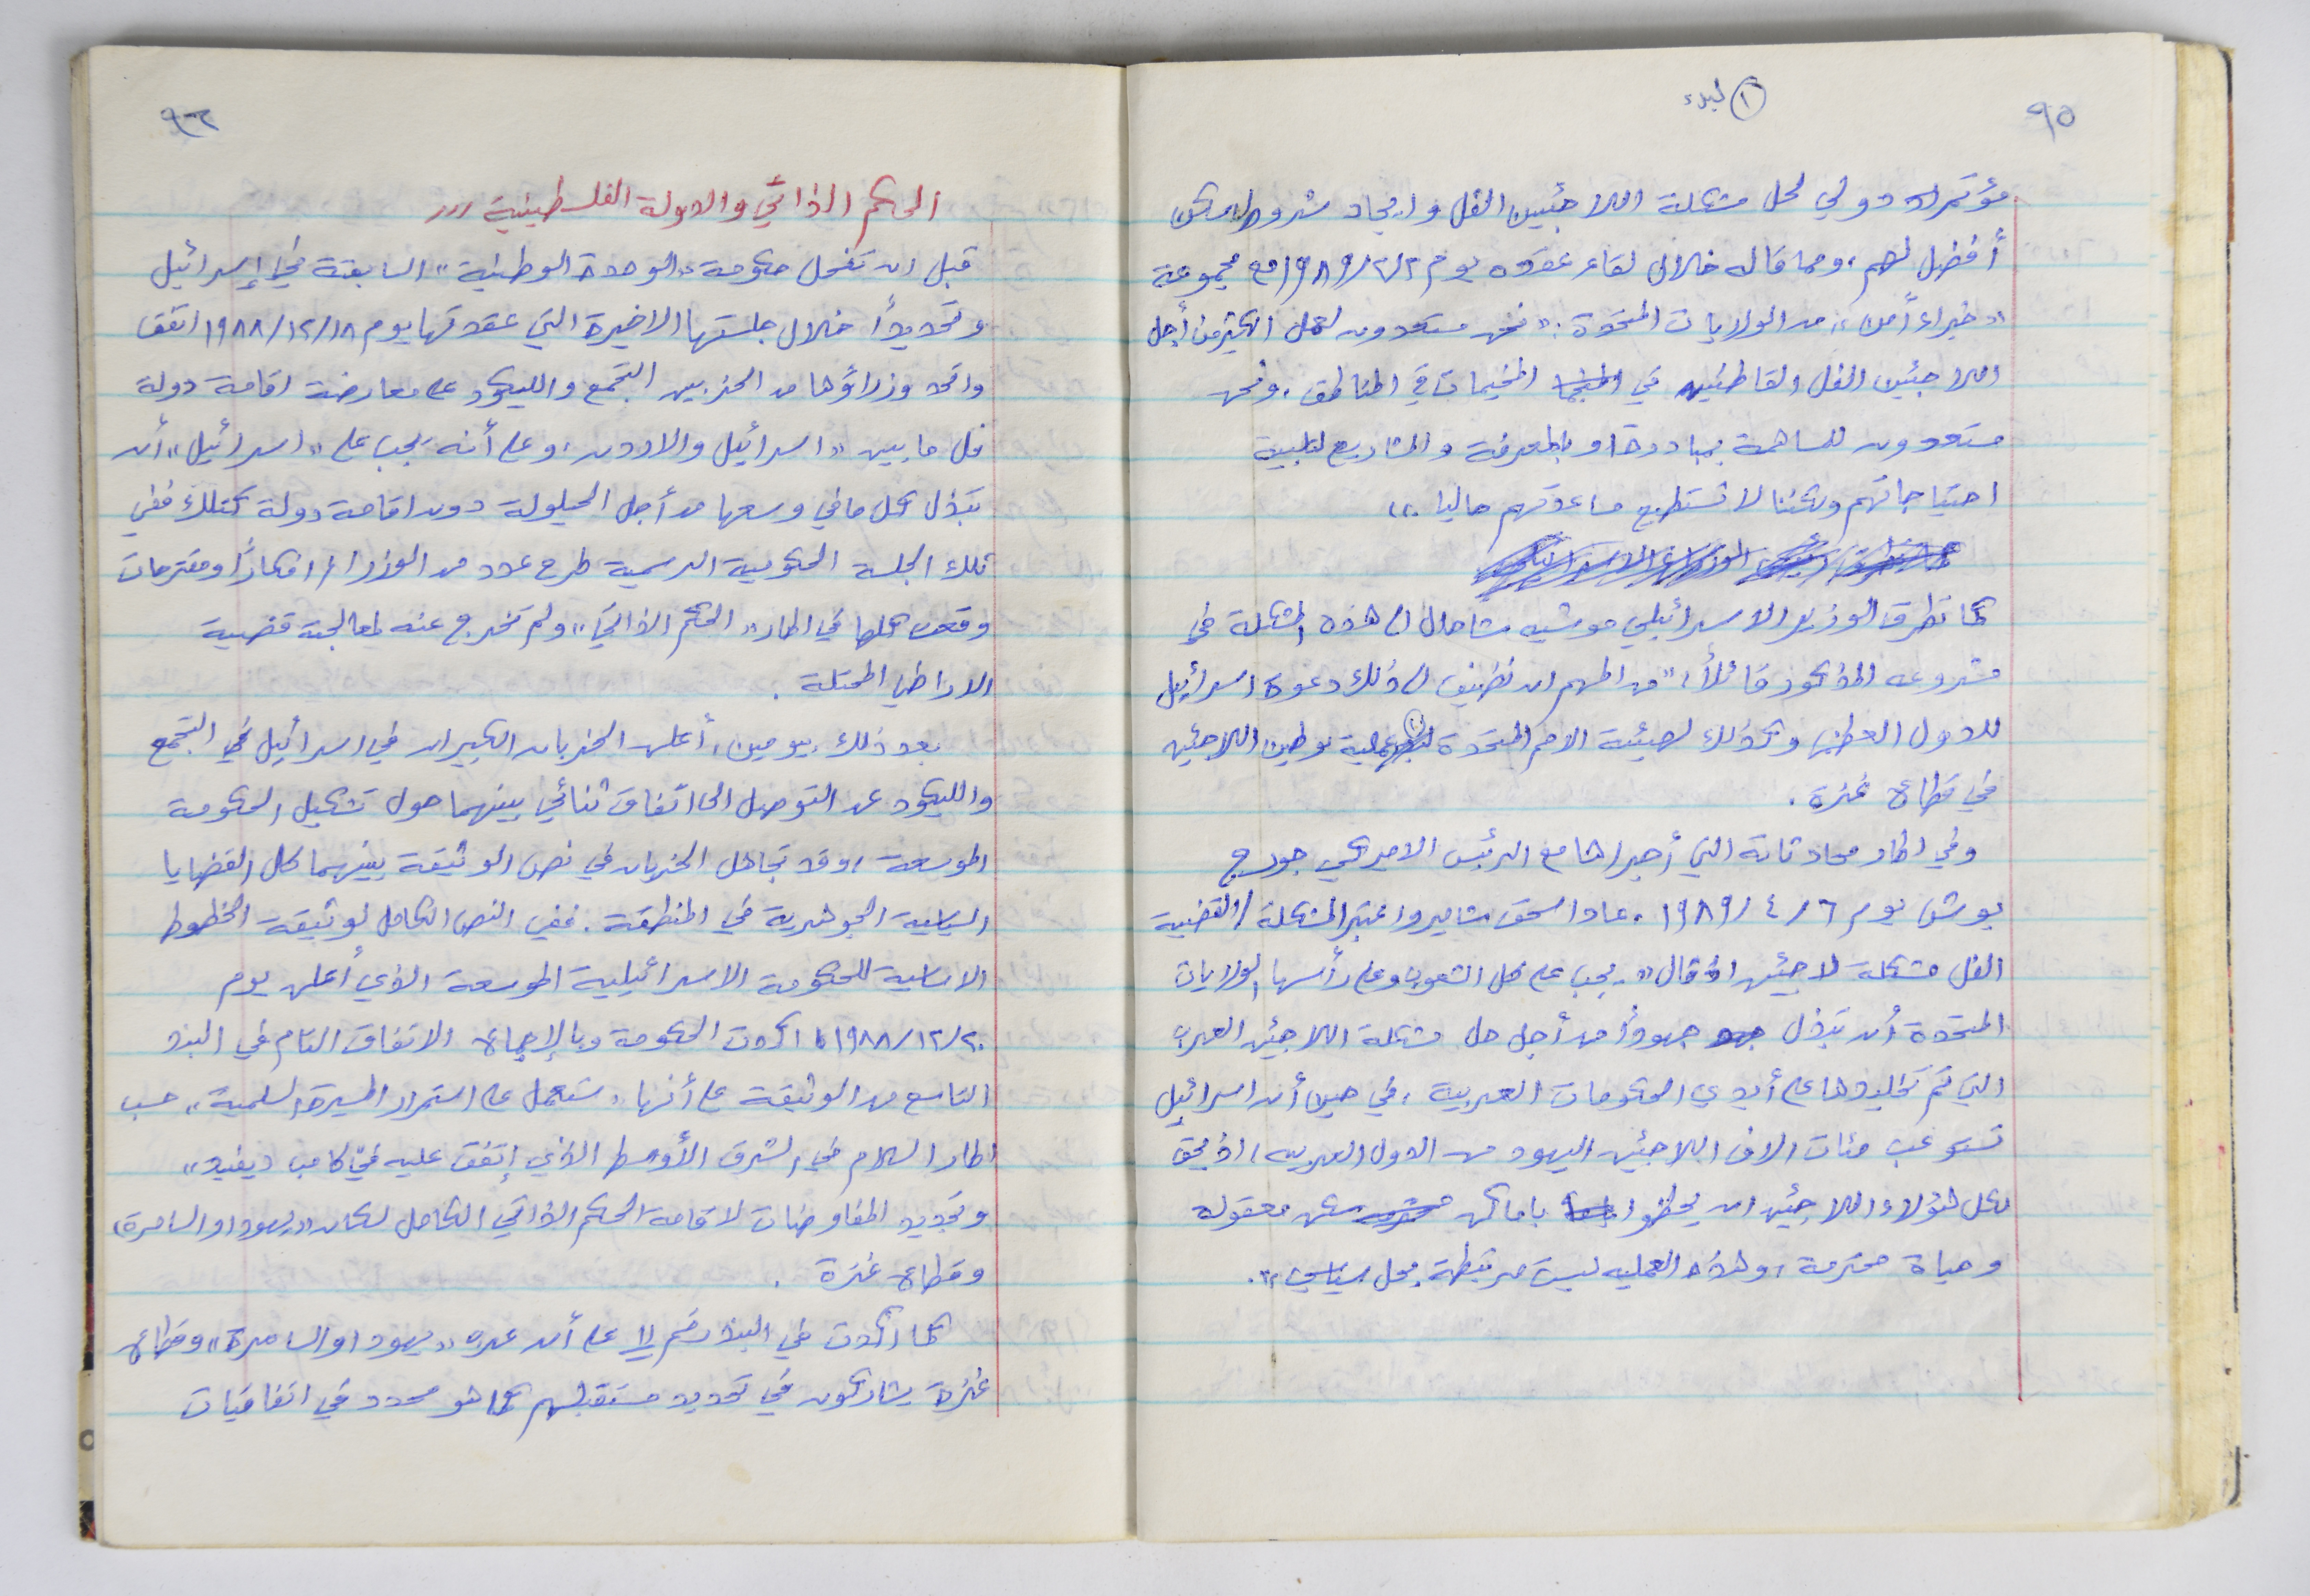 ٩٥
① لبدء
مؤتمراً دولي لحل مشكلة اللاجئين الفل وايجاد شروط سكن
أفضل لهم، ومما قاله خلال لقاء عقده يوم ١٩٨٩/٢/٢ مع مجموعة
«خبراء أمن» من الولايات المتحدة: «نحن مستعدون لعمل الكثير من أجل
اللاجئين الفل القاطنين في المخيمات في المناطق، ونحن
مستعدون للمساهمة بمبادرة او بالمعرفة والمشاريع لتلبية
احتياجاتهم ولكننا لا نستطيع مساعدتهم حاليا».
كما تطرق الوزير الاسرائيلي موشيه شاحال الى هذه المشكلة في
مشروعه المذكور قائلاً: «من المهم ان نضيف الى ذلك دعوة اسرائيل
للدول العظمى وكذلك لهيئة الامم المتحدة ① عملية توطين اللاجئين
في قطاع غزة.
وفي اطار محادثاته التي أجراها مع الرئيس الامريكي جورج
بوش يوم ١٩٨٩/٤/٦، عاد اسحق شامير واعتبر المشكلة / القضية
الفل مشكلة لاجئين اذ قال «يجب على كل الشعوب وعلى رأسها الولايات
المتحدة أن تبذل جهوداً من أجل حل مشكلة اللاجئين العرب
التي تم تخليدها على أيدي الحكومات العربية، في حين أن اسرائيل
تستوعب مئات الاف اللاجئين اليهود من الدول العربيه، اذ يحق
لكل هؤلاء اللاجئين ان يحظوا باماكن سكن معقوله
وحياة محترمة، وهذه العمليه ليست مرتبطة بحل سياسي».
٩٦
الحكم الذاتي والدولة الفلسطينية ...
قبل ان تنحل حكومة «الوحدة الوطنية» السابقة في إسرائيل
وتحديداً خلال جلستها الاخيرة التي عقدتها يوم ١٩٨٨/١٢/١٨ اتفق
واتحد وزراؤها من الحزبين التجمع والليكود على معارضة اقامة دولة
فل ما بين «اسرائيل والاردن، وعلى أنه يجب على «اسرائيل» أن
تبذل كل ما في وسعها من أجل الحيلولة دون اقامة دولة كتلك ففي
تلك الجلسة الحكومية الرسمية طرح عدد من الوزراء افكاراً ومقترحات
وقعت كلها في اطار «الحكم الذاتي» ولم تخرج عنه لمعالجة قضية
الاراضي المحتلة.
بعد ذلك بيومين، أعلن الحزبان الكبيران في اسرائيل في التجمع
والليكود عن التوصل الى اتفاق ثنائي بينهما حول تشكيل الحكومة
الموسعة، وقد تجاهل الحزبان في نص الوثيقة بينهما كل القضايا
السياسية الجوهرية في المنطقة. ففي النص الكامل لوثيقة الخطوط
الاساسية للحكومة الاسرائيلية الموسعة الذي أعلن يوم
١٩٨٨/١٢/٢٠ اكدت الحكومة وبالإجماع الاتفاق التام في البند
التاسع من الوثيقة على أنها «ستعمل على استمرار المسيرة السلمية، حسب
اطار السلام في الشرق الأوسط الذي إتفق عليه في كامب ديفيد»
وتجديد المفاوضات لاقامة الحكم الذاتي الكامل لسكان «يهودا والسامرة)
وقطاع غزة.
كما اكدت في البند رقم ١١ على أن عرب «يهودا والسامرة» وقطاع
غزة يشاركون في تحديد مستقبلهم كما هو محدد في اتفاقيات